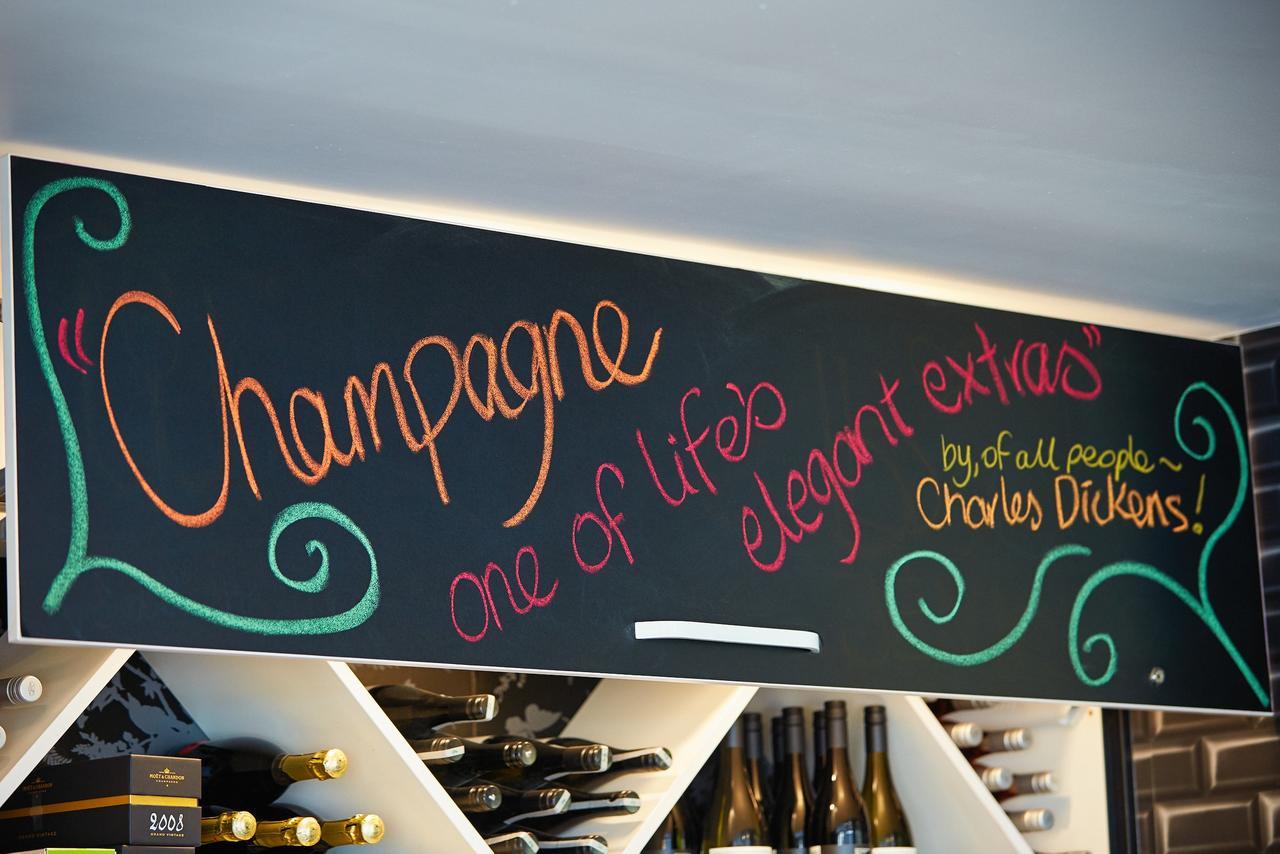 "Champagne
one of life's
elegant extras"
by, of all people ~
Charles Dickens!
MOËT & CHANDON
CHAMPAGNE
2008
GRAND VINTAGE